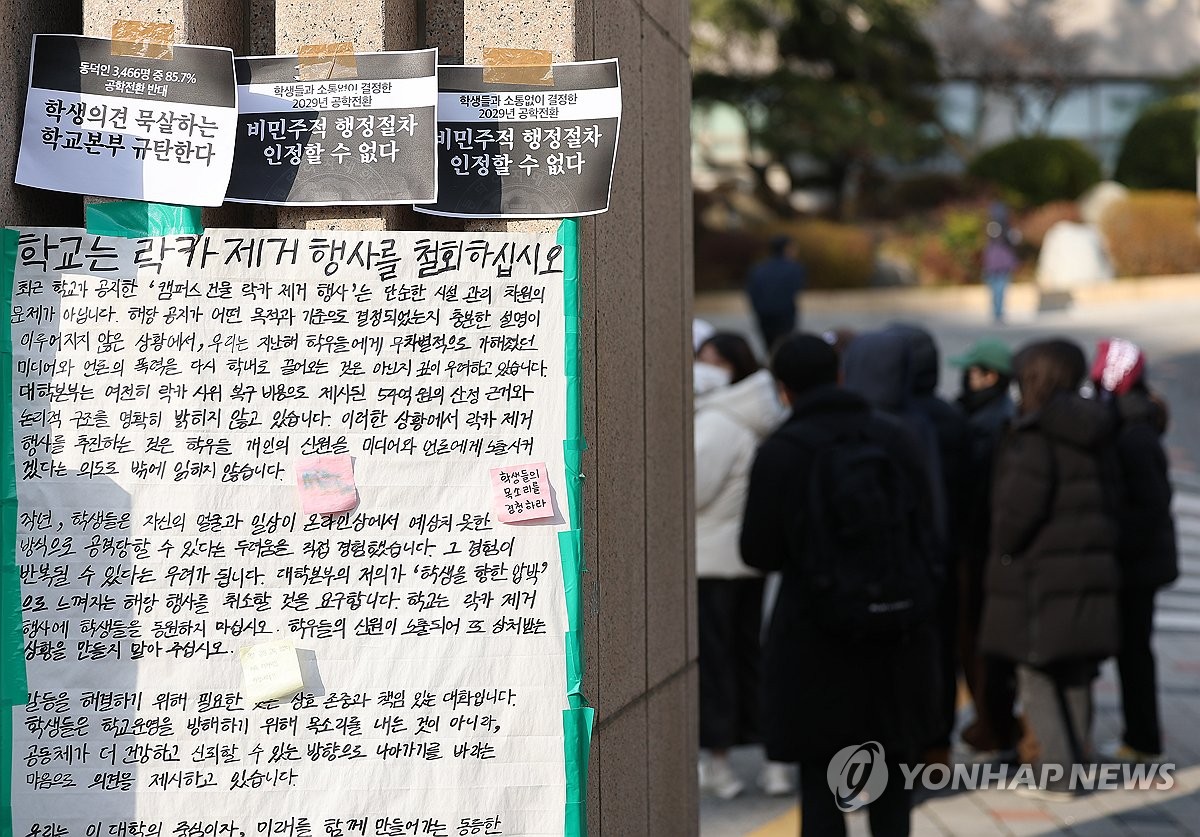 동덕인 3,466명 중 85.7%
공학전환 반대
학생의견 묵살하는
학교본부 규탄한다
학생들과 소통없이 결정한
2029년 공학전환
비민주적 행정절차
인정할 수 없다
학생들과 소통없이 결정한
2029년 공학전환
비민주적 행정절차
인정할 수 없다
학교는 락카 제거 행사를 철회하십시오
최근 학교가 공지한 '캠퍼스 건물 락카 제거 행사'는 단순한 시설 관리 차원의
문제가 아닙니다. 해당 공지가 어떤 목적과 기준으로 결정되었는지 충분한 설명이
이루어지지 않은 상황에서, 우리는 지난해 학우들에게 무차별적으로 가해졌던
미디어와 언론의 폭력을 다시 학내로 끌어오는 것은 아닌지 깊이 우려하고 있습니다.
대학본부는 여전히 락카 시위 복구 비용으로 제시된 54억 원의 산정 근거와
논리적 구조를 명확히 밝히지 않고 있습니다. 이러한 상황에서 락카 제거
행사를 추진하는 것은 학우들 개인의 신원을 미디어와 언론에게 노출시키
겠다는 의도로 밖에 읽히지 않습니다.
학생들의
목소리를
경청하라
작년, 학생들은 자신의 얼굴과 일상이 온라인상에서 예상치 못한
방식으로 공격당할 수 있다는 두려움을 직접 경험했습니다. 그 경험이
반복될 수 있다는 우려가 됩니다. 대학본부의 저의가 "학생을 향한 압박"
으로 느껴지는 해당 행사를 취소할 것을 요구합니다. 학교는 락카 제거
행사에 학생들을 동원하지 마십시오. 학우들의 신원이 노출되어 또 상처받는
상황을 만들지 말아 주십시오.
갈등을 해결하기 위해 필요한 것은 상호 존중과 책임 있는 대화입니다.
학생들은 학교운영을 방해하기 위해 목소리를 내는 것이 아니라,
공동체가 더 건강하고 신뢰할 수 있는 방향으로 나아가기를 바라는
마음으로 의견을 제시하고 있습니다.
우리는 이 대학의 중심이자, 미래를 함께 만들어가는 동등한
YONHAP NEWS